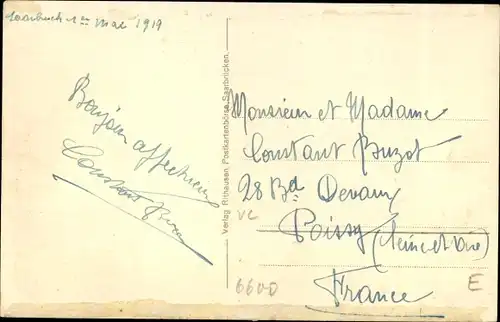 Saarbruck 1er Mai 1919
Bonjour affectueux
Constant
Verlag Rithausen, Postkartenbörse, Saarbrücken.
Monsieur et Madame
Constant Buzot
28 Bd Devaux
VC
Poissy (Seine et Oise)
6600
France
E